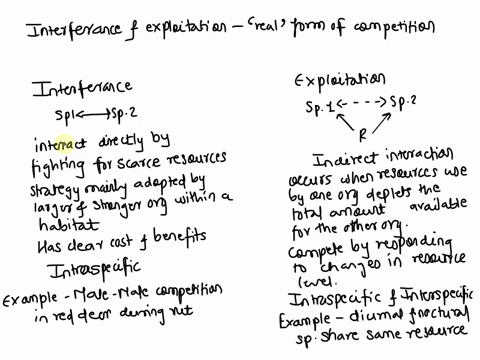 Interferance & exploitation - 'real' form of competition
Interferance
Sp1 ⟷ Sp.2
interact directly by
fighting for scarce resources
strategy mainly adopted by
larger & stronger org within a
habitat
Has clear cost & benefits
Intraspecific
Example - Male-Male competition
in red deer during rut
Exploitation
Sp.1 <----> Sp.2
R
Indirect interaction
occurs when resources use
by one org depletes the
total amount available
for the other org.
Compete by responding
to changed in resource
level.
Intraspecific & Interspecific
Example - diurnal & noctural
sp. share same resource